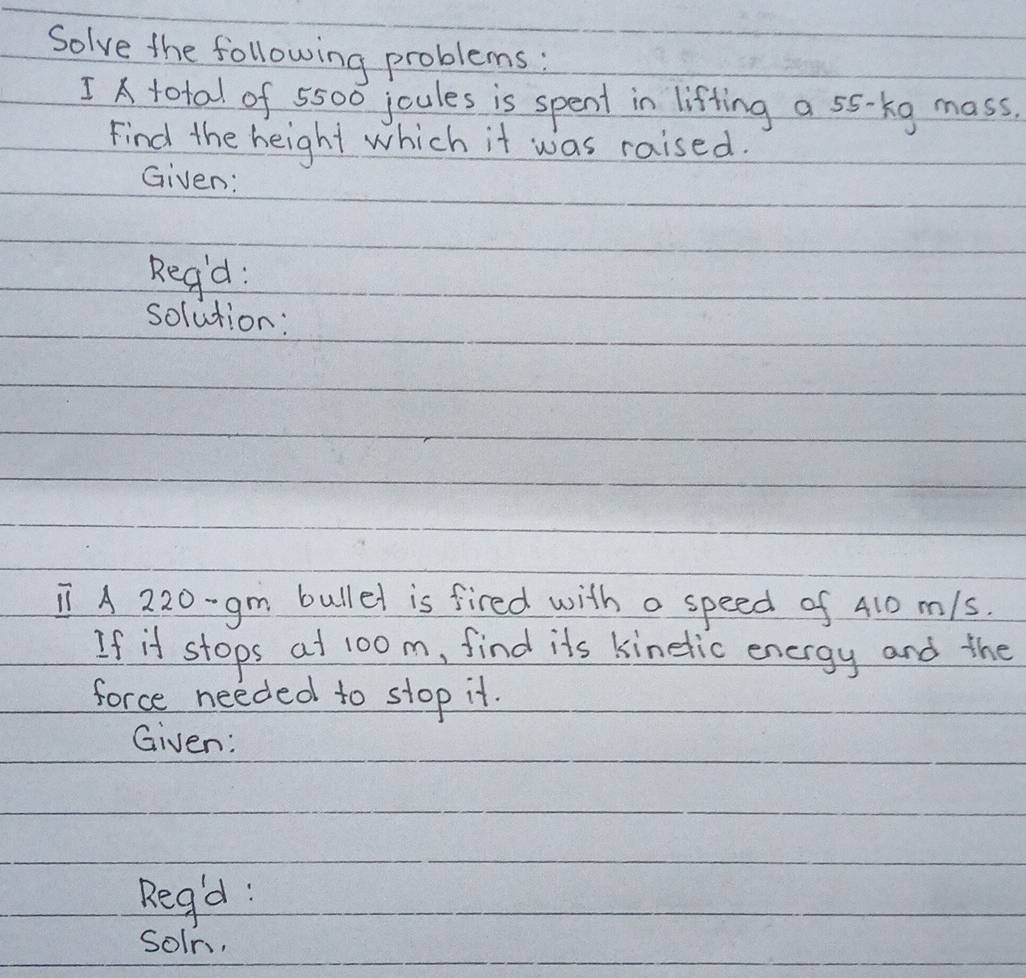 Solve the following problems:
I A total of 5500 joules is spent in lifting a 55-kg mass.
Find the height which it was raised.
Given:
Req'd:
Solution:
II A 220-gm bullet is fired with a speed of 410 m/s.
If it stops at 100 m, find its kinetic energy and the
force needed to stop it.
Given:
Req'd:
Soln.